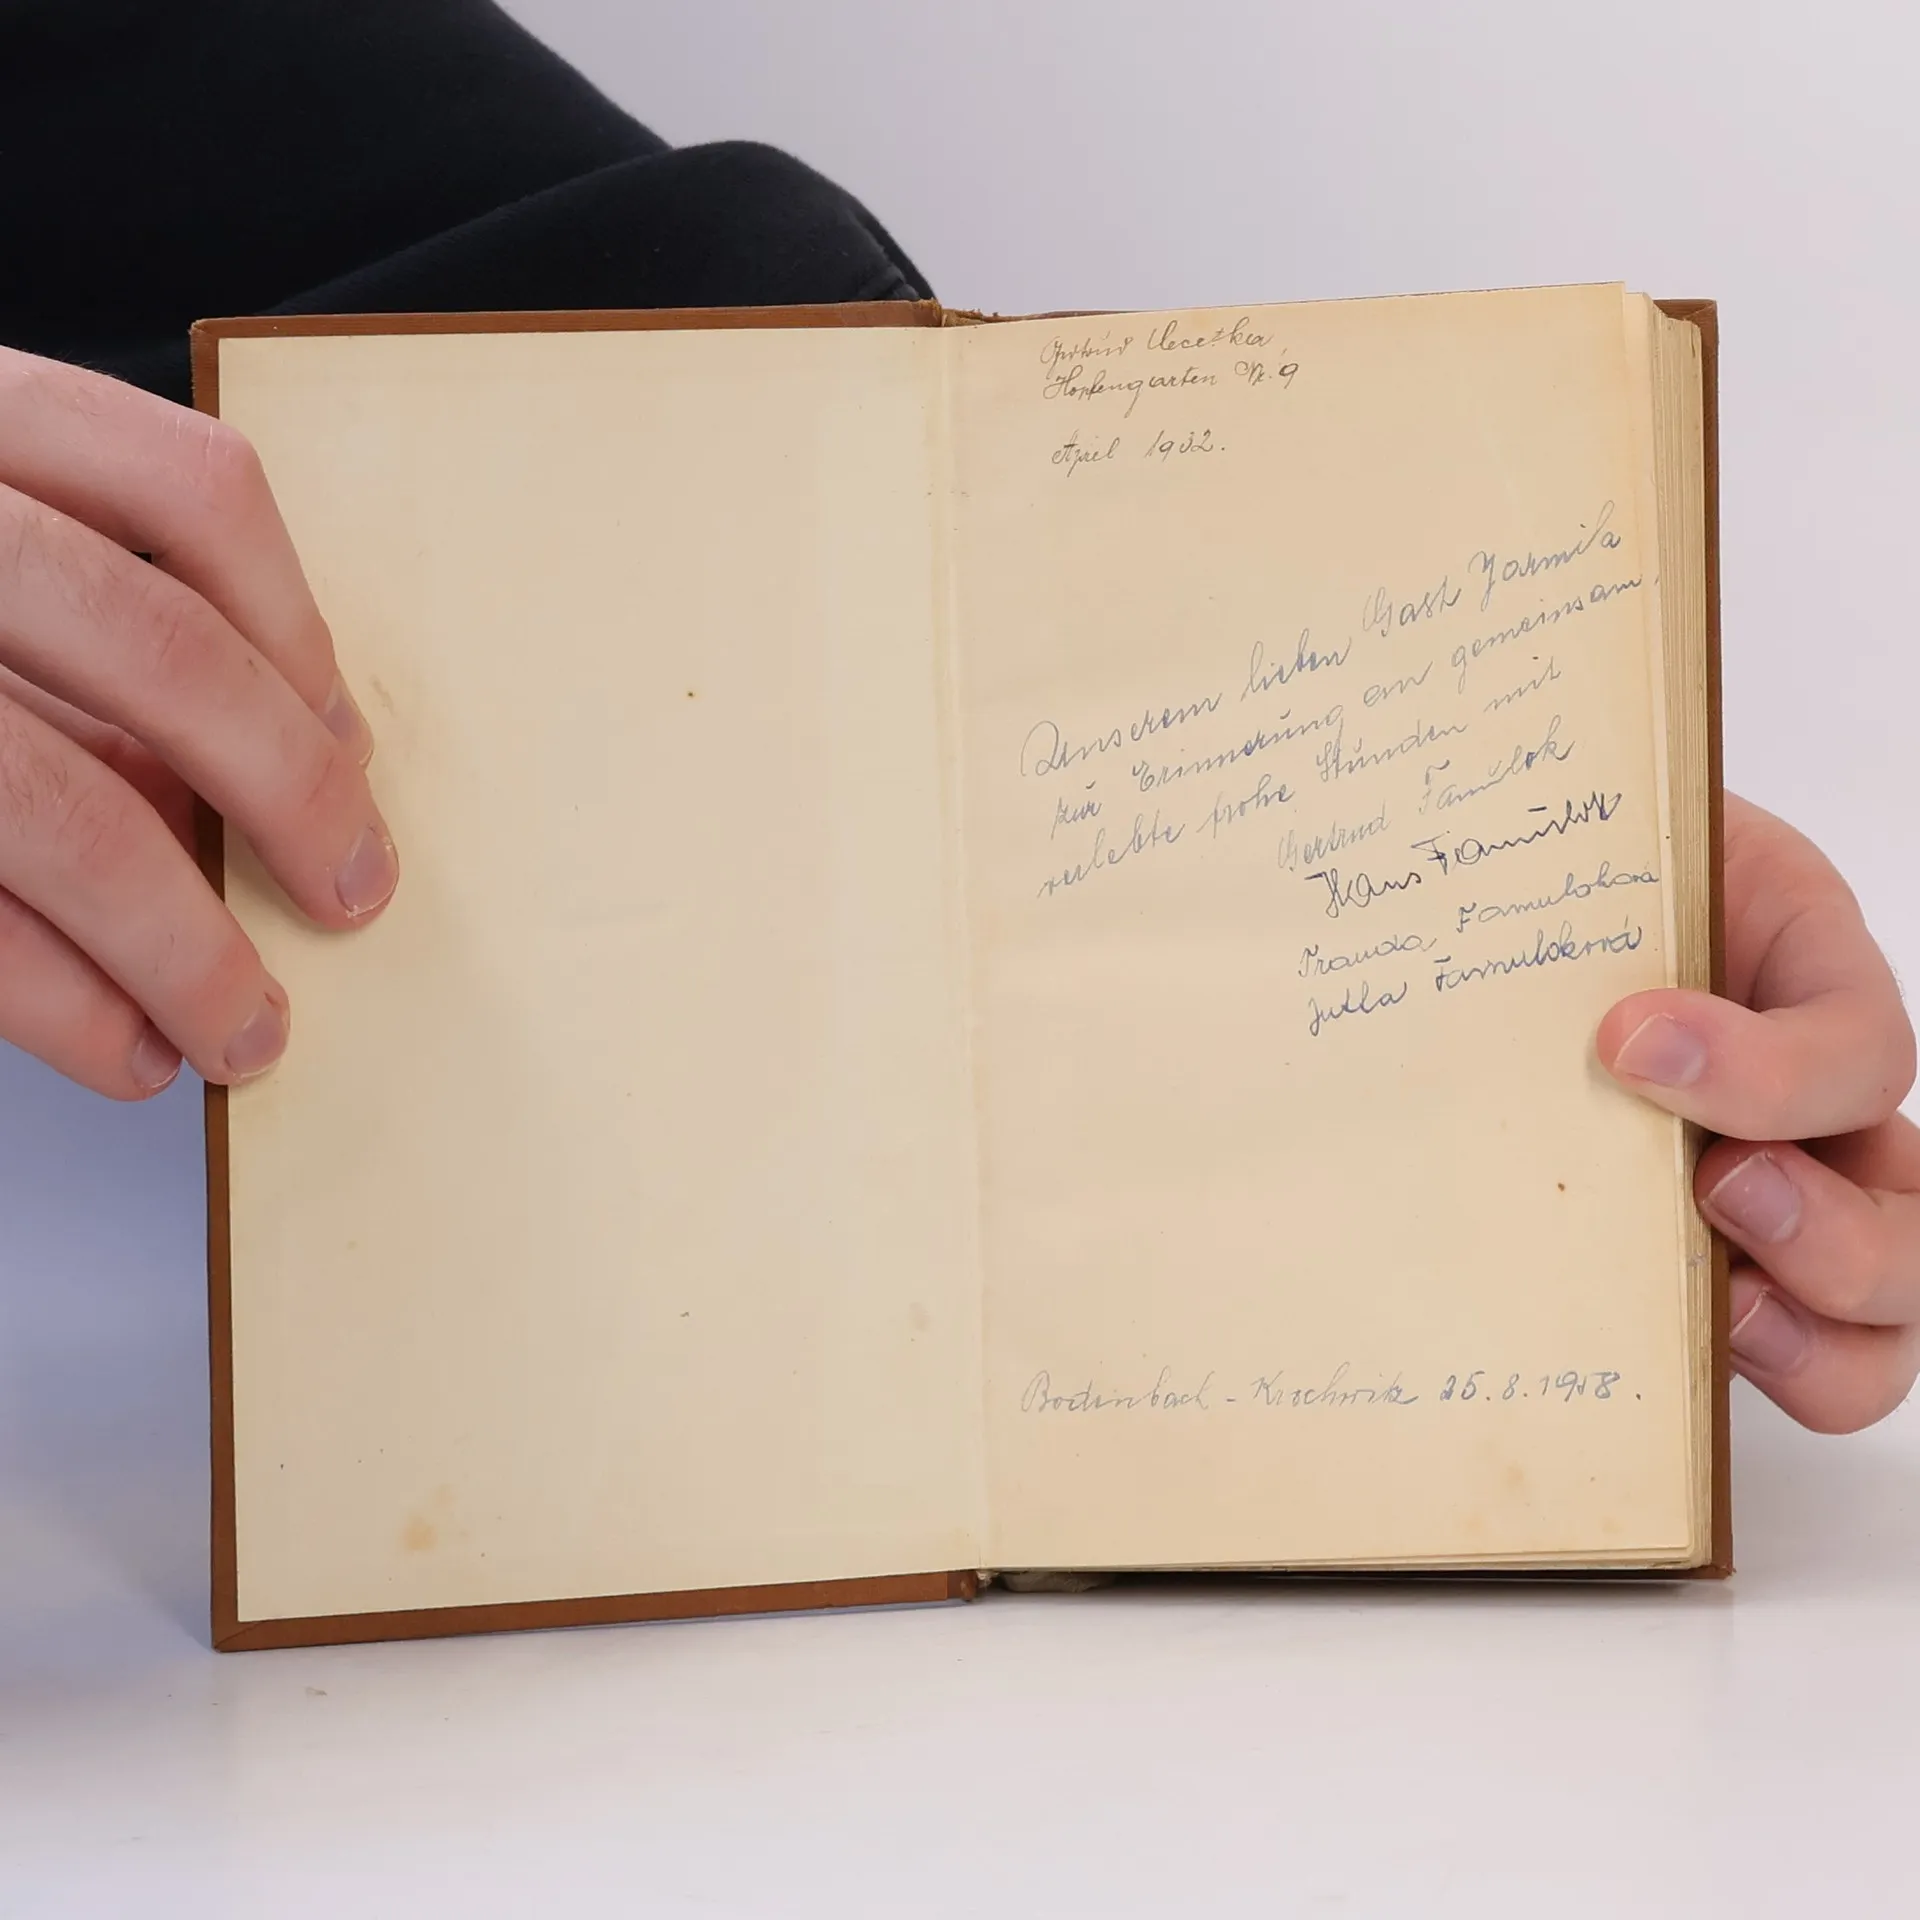 Gertrud
Hopfengarten Nr. 9
April 1932.
Unserem lieben Gast Jarmila
zur Erinnerung an gemeinsam
verlebte frohe Stunden mit
Gertrud Famŭlok
Hans Famŭlok
Trauda Famuloková
Jutta Famuloková
Bodenbach - Krochwitz 25.8.1958.